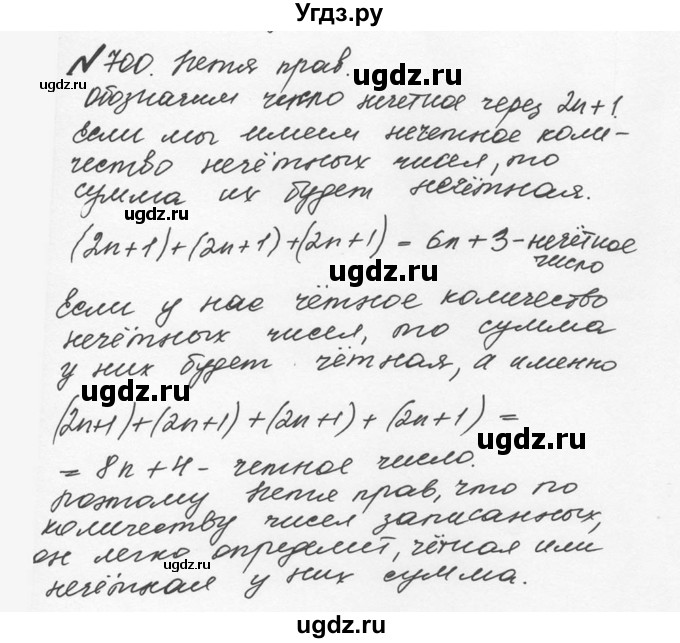 Угдз.ру
№700. Петя прав.
ugdz.ru
ugdz.ru
Обозначим число нечётное через 2n+1.
Если мы имеем нечетное коли-
ugdz.ru
чество нечётных чисел, то
сумма их будет нечётная.
ugdz.ru
(2n+1)+(2n+1)+(2n+1) = 6n+3-нечётное
число
ugdz.ru
Если у нас чётное количество
нечётных чисел, то сумма
ugdz.ru
у них будет чётная, а именно
ugdz.ru
(2n+1)+(2n+1)+(2n+1)+(2n+1) =
ugdz.ru
= 8n+4- четное число.
ugdz.ru
Поэтому Петя прав, что по
количеству чисел записанных,
ugdz.ru
он легко определит, чётная или
нечётная у них сумма.
ugdz.ru
ugdz.ru